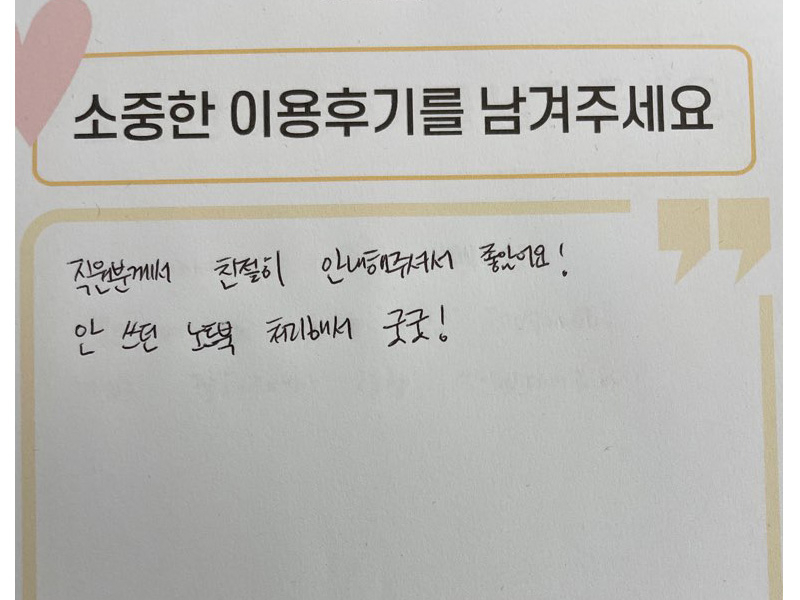 소중한 이용후기를 남겨주세요
직원분께서 친절히 안내해주셔서 좋았어요!
안 쓰던 노트북 처리해서 굿굿!